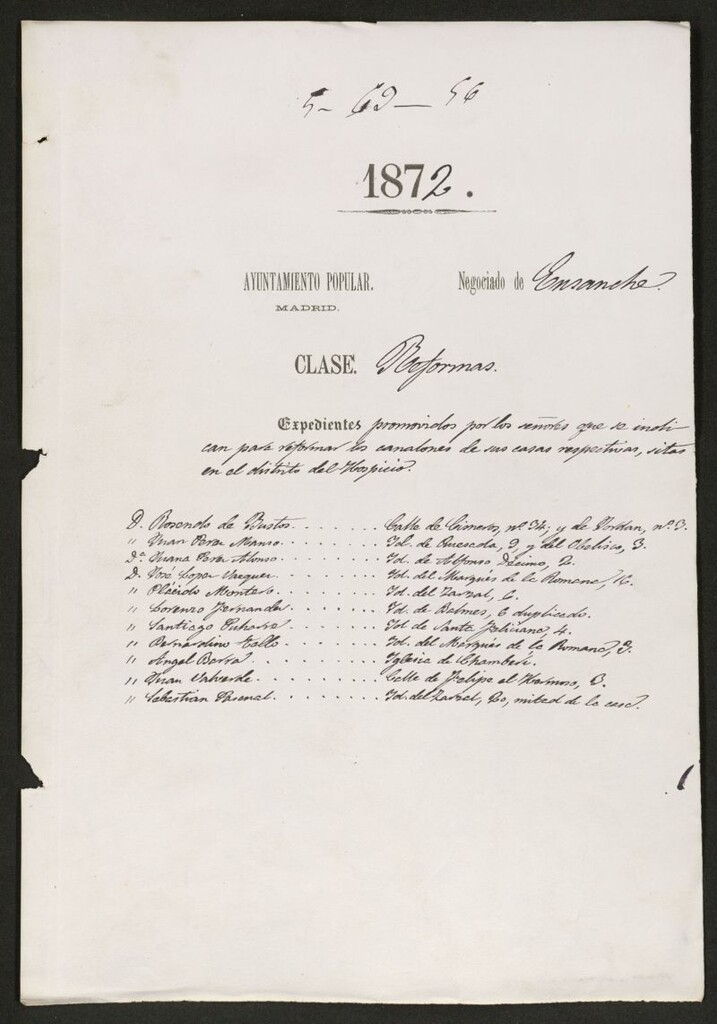 5- 69- 56
1872.
AYUNTAMIENTO POPULAR. Negociado de Ensanche.
MADRID.
CLASE. Reformas.
Expedientes promovidos por los señores que se indi-
can para reformar los canalones de sus casas respectivas, sitas
en el distrito del Hospicio.
D. Rosendo de Bustos. . . . . . . Calle de Cisneros, nº 34; y de Jordan, nº 3.
" Juan Perez Manso. . . . . . . Id. de Quesada, 9, y del Obelisco, 3.
Dª Juana Perez Alonso. . . . . . . Id. de Alfonso Décimo, 2.
D. José Lopez Vazquez. . . . . . . Id. del Marqués de la Romana, 16.
" Plácido Montero. . . . . . . Id. del Zarzal, 6.
" Lorenzo Fernandez. . . . . . . Id. de Balmes, 6 duplicado.
" Santiago . . . . . . . Id. de Santa Feliciana, 4.
" Bernardino Tello. . . . . . . Id. del Marqués de la Romana, 3.
" Angel Barra. . . . . . . Iglesia de Chamberí.
" Juan Valverde. . . . . . . Calle de Felipe el Hermoso, 6.
" Sebastian Pascual. . . . . . . Id. del Zarzal, 20, mitad de la casa.